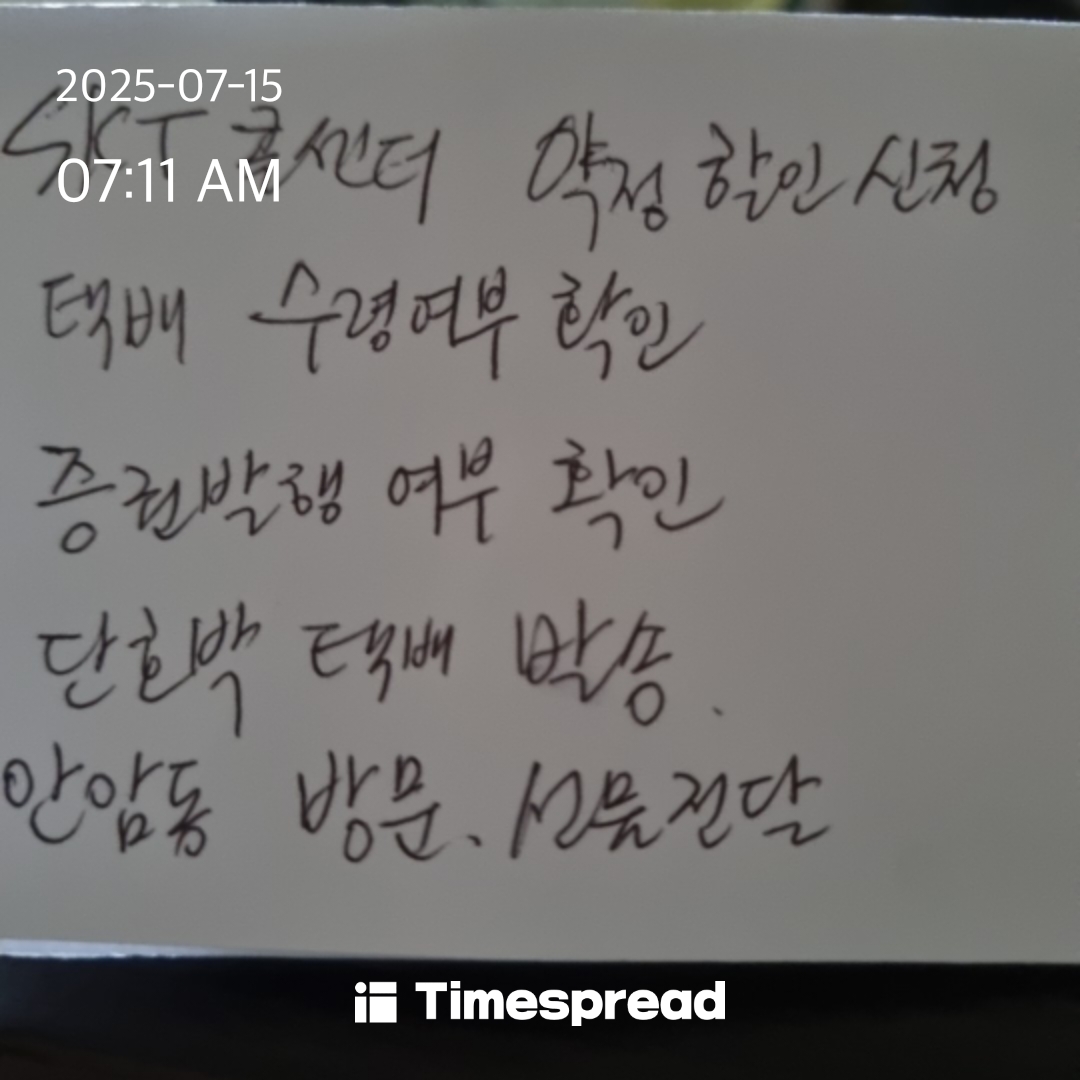 2025-07-15
07:11 AM
SKT 콜센터 약정 할인 신청
택배 수령여부 확인
증권발행 여부 확인
단호박 택배 발송.
안암동 방문. 선물전달
Timespread